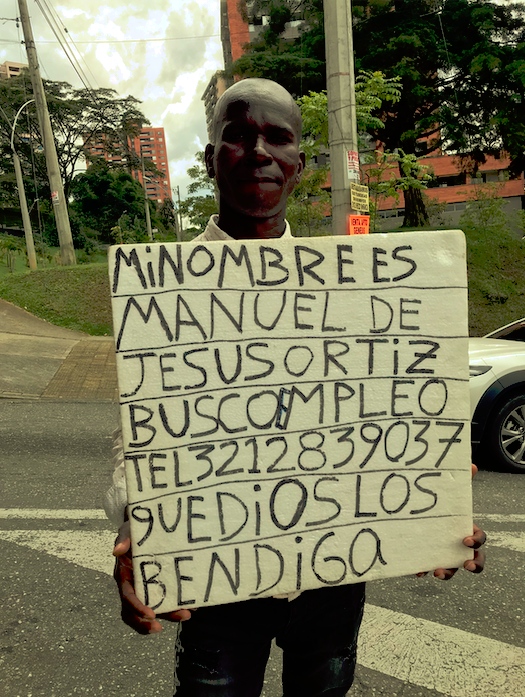 MiNOMBRE ES
MANUEL DE
JESUSORTIZ
BUSCOEMPLEO
TEL3212839037
qUEDiOSLOS
BENDiGa